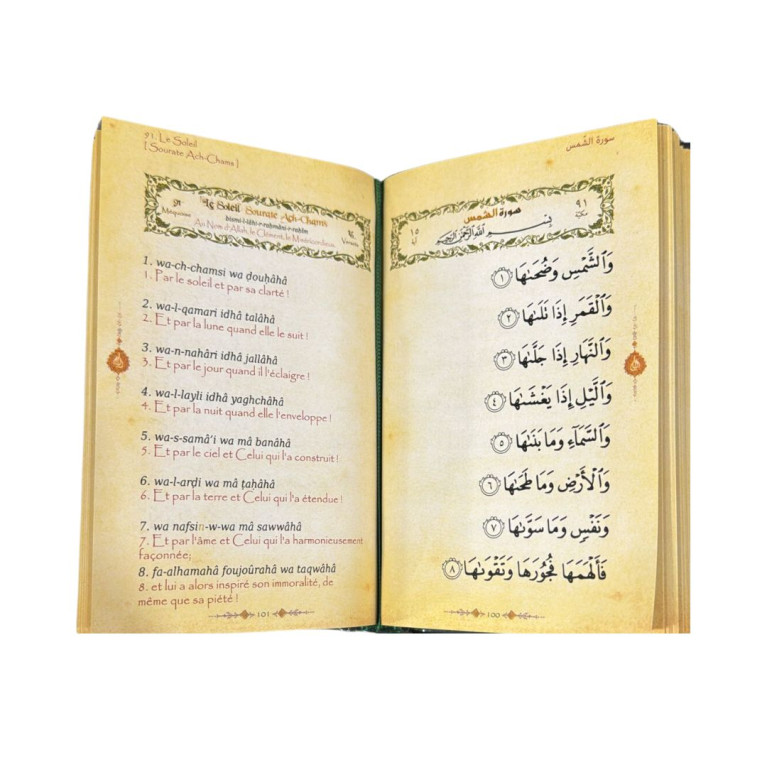 91. Le Soleil
[ Sourate Ach-Chams ]
Le Soleil Sourate Ach-Chams
bismi-l-lâhi-r-raḥmâni-r-raḥîm
Au Nom d'Allah, le Clément, le Miséricordieux
Mequoise
Versets
1. wa-ch-chamsi wa ḍouḥâhâ
1. Par le soleil et par sa clarté !
2. wa-l-qamari idhâ talâhâ
2. Et par la lune quand elle le suit !
3. wa-n-nahâri idhâ jallâhâ
3. Et par le jour quand il l'éclaigre !
4. wa-l-layli idhâ yaghchâhâ
4. Et par la nuit quand elle l'enveloppe !
5. wa-s-samâ'i wa mâ banâhâ
5. Et par le ciel et Celui qui l'a construit !
6. wa-l-arḍi wa mâ ṭaḥâhâ
6. Et par la terre et Celui qui l'a étendue !
7. wa nafsin-w-wa mâ sawwâhâ
7. Et par l'âme et Celui qui l'a harmonieusement
façonnée;
8. fa-alhamahâ foujoûrahâ wa taqwâhâ
8. et lui a alors inspiré son immoralité, de
même que sa piété !
101
سورة الشمس
٩١
مكية
سورة الشمس
١٥
آية
بِسْمِ اللَّهِ الرَّحْمَنِ الرَّحِيمِ
وَٱلشَّمْسِ وَضُحَىٰهَا ١
وَٱلْقَمَرِ إِذَا تَلَىٰهَا ٢
وَٱلنَّهَارِ إِذَا جَلَّىٰهَا ٣
وَٱلَّيْلِ إِذَا يَغْشَىٰهَا ٤
وَٱلسَّمَآءِ وَمَا بَنَىٰهَا ٥
وَٱلْأَرْضِ وَمَا طَحَىٰهَا ٦
وَنَفْسٍ وَمَا سَوَّىٰهَا ٧
فَأَلْهَمَهَا فُجُورَهَا وَتَقْوَىٰهَا ٨
100